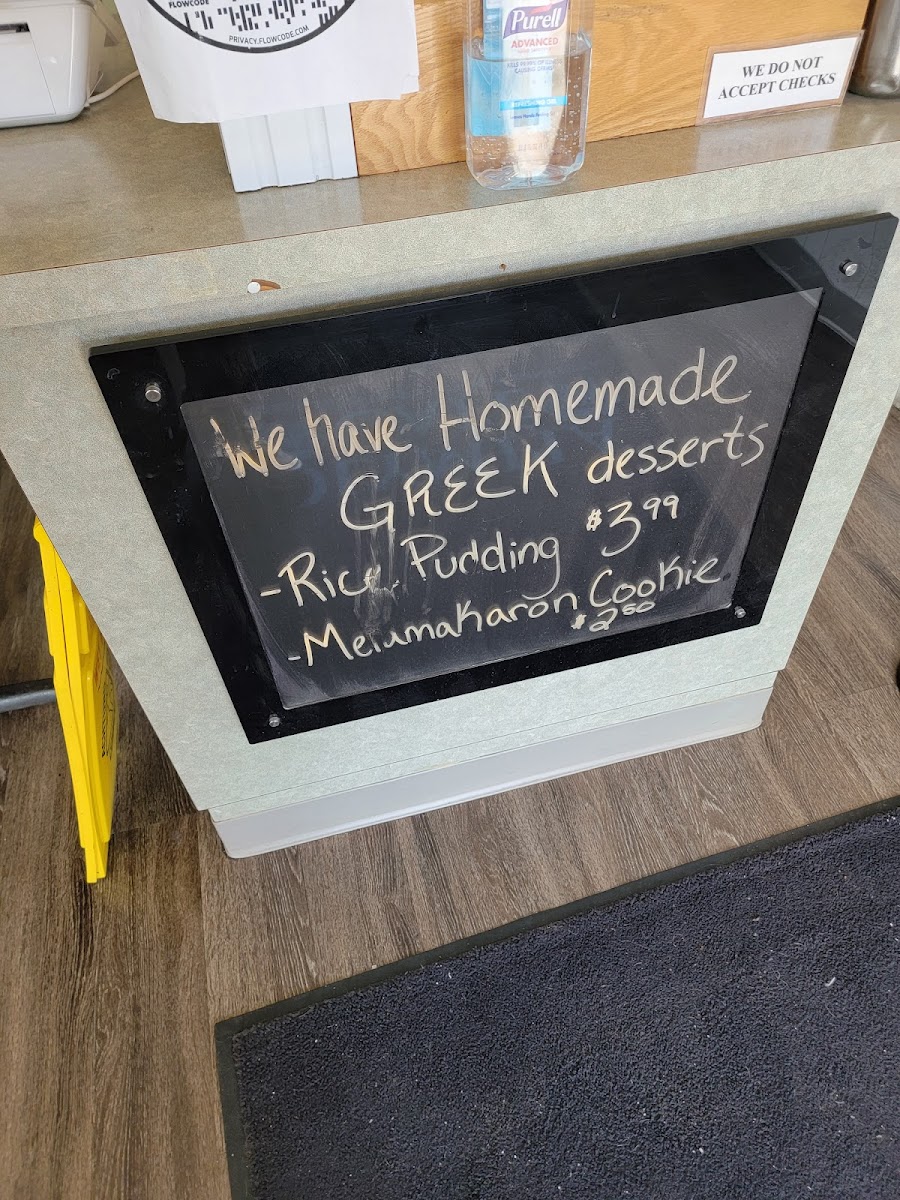 FLOWCODE
PRIVACY.FLOWCODE.COM
Purell
ADVANCED
WE DO NOT
ACCEPT CHECKS
We have Homemade
GREEK desserts
- Rice Pudding $3.99
- Melumakaron Cookie
$2.50